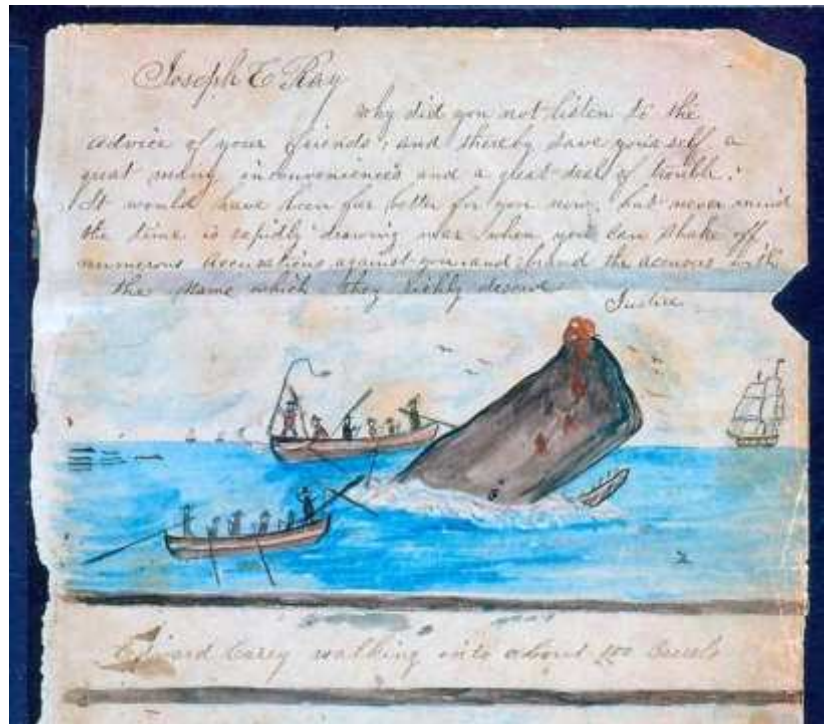 Joseph E Ray
why did you not listen to the
advice of your friends, and thereby save yourself a
great many inconveniences and a great deal of trouble.
It would have been far better for you now, but never mind
the time is rapidly drawing near when you can shake off
numerous accusations against you and brand the accusers with
the name which they richly deserve
Justice
Edward Carey walking into about 100 Barrels